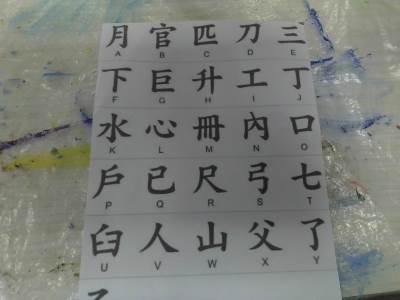 月 官 匹 刀 三
A B C D E
下 巨 升 工 丁
F G H I J
水 心 冊 內 口
K L M N O
戶 已 尺 弓 七
P Q R S T
臼 人 山 父 了
U V W X Y